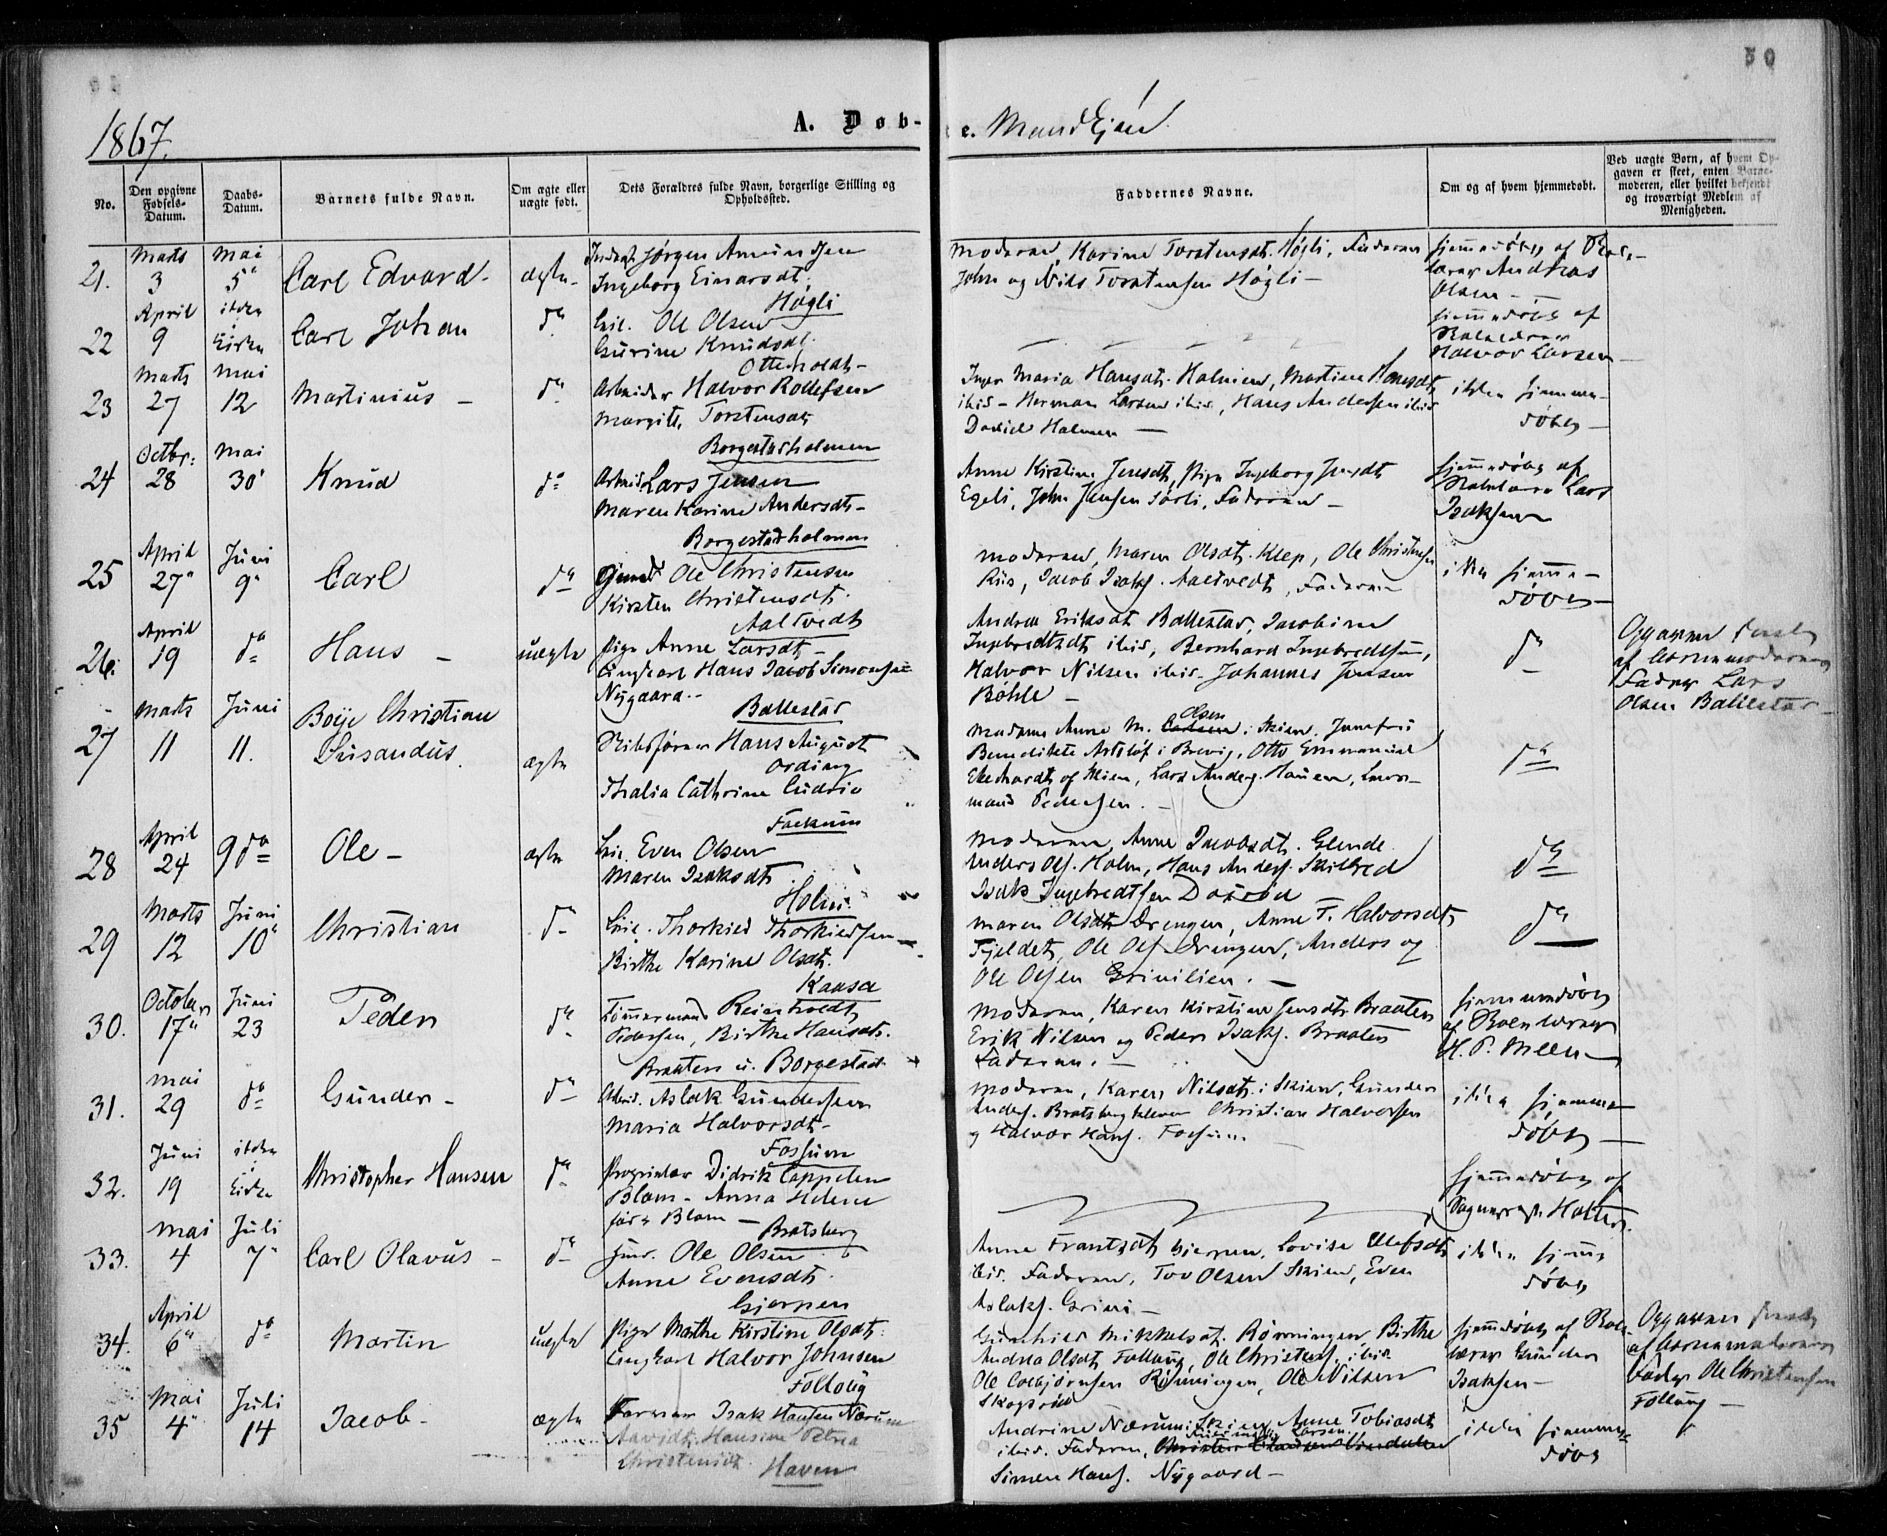 50
1867.
A. Døb-
e. Mandkjøn
No.
Den opgivne Fødsels-Datum.
Daabs-Datum.
Barnets fulde Navn.
Om ægte eller uægte født.
Dets Forældres fulde Navn, borgerlige Stilling og Opholdssted.
Faddernes Navne.
Om og af hvem hjemmedøbt.
Ved uægte Børn, af hvem Opgaven er skeet, enten Barnemoderen, eller hvilket bekjendt og troværdigt Medlem af Menigheden.
21. Marts 3 Mai 5 Carl Edvard - ægte -
Jørgen Amundsen
Ingeborg Einarsdt.
Høgli
Moderen, Karine Torstensdt. Høgli, Faderen
John og Nils Torstensen Høgli -
hjemmedøbt af
lærer Andreas
Olsen -
22 April 9 ikke i Kirken Carl Johan do
Ole Olsen
Gurine Knudsdt.
Otterholdt -
hjemmedøbt af
Halvor Larsen -
23 Marts 27 Mai 12 Martinius - do
Arbeider Halvor Rollefsen
Margith Torstensdt.
Borgestadholmen
Inger Maria Hansdt. Holmen, Martine Hansdt.
ibid - Herman Larsen ibid, Hans Andersen ibid
David Holmen -
ikke hjemme-
døbt -
24 Octbr: 28 Mai 30 Knud do
Arbeid. Lars Jensen
Maren Karine Andersdt -
Borgestadholmen
Anne Kirstine Jensdt, Pige Ingeborg Jensdt
Egeli, John Jensen Sørli, Faderen -
hjemmedøbt af
Lars
Isaksen
25 April 27 Juni 9 Carl do
Gmd. Ole Christensen
Kirsten Christensdt.
Aaltvedt
Moderen, Maren Olsdt. Klep, Ole Christensen
Riis, Jacob Isaks. Aaltvedt, Faderen
ikke hjemme-
døbt -
26. April 19 do Hans - uægte
Pige Anne Larsdt -
Ungkarl Hans Jacob Simonsen
Nygaard. -
Ballestad
Andrea Eriksdt Ballestad, Jacobine
Ingebretsdt ibid, Bernhard Ingebretsen,
Halvor Nilsen ibid. Johannes Jensen
Bøhle -
do
Opgaven skeet
af Barnemoderens
Fader Lars
Olsen Ballestad -
27 Marts 11 Juni 11. Boye Christian
Susandus. ægte
Hans August
Ording
Thalia Cathrine Ludvig
Fossum
Madame Anne M. Olsen i Skien, Jomfru
Benedikte i Brevig, Otto Emmanuel
Ekehardt af Skien, Lars Anders. Hansen,
Pedersen. -
do
28 April 24 9 do Ole - ægte
Even Olsen
Maren Isaksdt
Holm
Moderen, Anne Jacobsdt. Glende
Anders Ols. Holm, Hans Anders. Skilbred
Isak Ingebretsen
do
29 Marts 12 Juni 10 Christian do
Thorkild Thorkildsen -
Birthe Karine Olsdt.
Kaasa
Maren Olsdt Drengen, Anne T. Halvorsdt
Fjeldet, Ole Ols. Drengen, Anders og
Ole Olsen Grinilien. -
do
30. October 17 Juni 23 Peder do
Tømmermand Reinholdt
Pedersen, Birthe Hansdt.
Braaten u. Borgestad
Moderen, Karen Kirstine Jensdt Braaten
Erik Nilsen og Peder Isaks. Braaten
Faderen. -
hjemmedøbt
af Skolelærer
H. P. Meen -
31. Mai 29 do Gunder - do
Arbeid. Aslak Gundersen
Maria Halvorsdt -
Fossum
Moderen, Karen Nilsdt. i Skien, Gunder
Anders. Bratsbergkleven Christian Halvorsen
og Halvor Hans. Fossum
ikke hjemme
døbt -
32. Juni 19 ikke i Kirke Christopher Hansen do
Proprietær Didrik Cappelen
Blom - Anna Helene
født Blom -
Bratsberg
hjemmedøbt af
Sognepræst Hølter
33. Mai 4 Juli 7 Carl Olavus - do
Ole Olsen
Anne Evensdt.
Gjerpen
Anne Frantsdt Lovise Olefsdt
ibid. Faderen, Tov Olsen Skien, Even
Aslaks. Grini -
ikke hjemme
døbt
34. April 6 do Martin uægte
Pige Marthe Kirstine Olsdt.
Ungkarl Halvor Johnsen
Follaug
Gunhild Mikkelsdt. Rønningen Birthe
Andrea Olsdt Follaug, Ole Christens. ibid
Ole Colbjørnsen Rønningen, Ole Nilsen
hjemmedøbt af Skole-
lærer Gunder
Isaksen -
Opgaven skeet
af Barnemoderens
Fader Ole Christensen
Follaug -
35 Mai 4 Juli 14 Jacob - ægte
Isak Hansen Nærum
Hansine Petrea
Haven
Andrine Nærum i Skien Anne Tobiasdt
ibid. Faderen, Larsen
Simen Hans. Nygaard -
ikke hjemme-
døbt